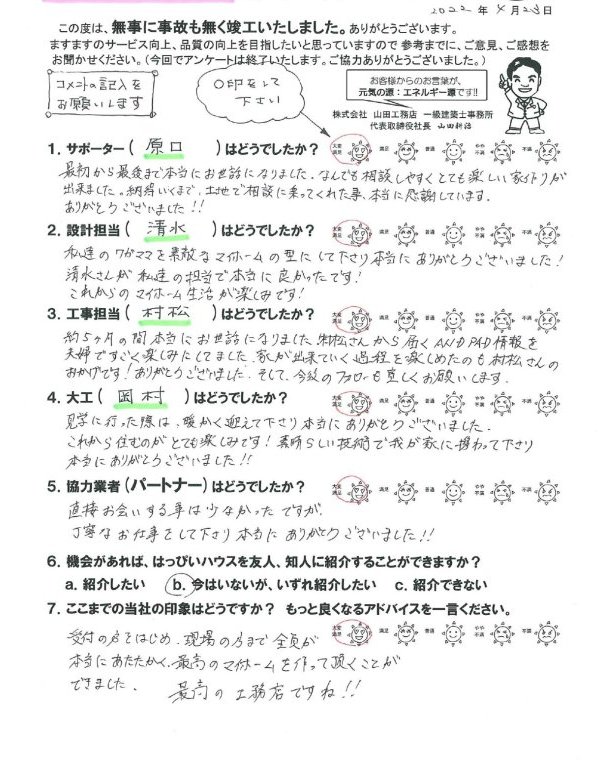 2022年4月23日
この度は、無事に事故も無く竣工いたしました。ありがとうございます。
ますますのサービス向上、品質の向上を目指したいと思っていますので 参考までに、ご意見、ご感想を
お聞かせください。(今回でアンケートは終了いたします。ご協力ありがとうございました。)
コメントの記入を
お願いします
○印をして
下さい
お客様からのお言葉が、
元気の源：エネルギー源です!!
株式会社 山田工務店 一級建築士事務所
代表取締役社長 山田新治
1. サポーター( 原口 )はどうでしたか?
大変満足 満足 普通 やや不満 不満
最初から最後まで本当にお世話になりました。なんでも相談しやすくとても楽しい家作りが
出来ました。納得いくまで、土地で相談に乗ってくれた事、本当に感謝しています。
ありがとうございました!!
2. 設計担当( 清水 )はどうでしたか?
大変満足 満足 普通 やや不満 不満
私達のワガママを素敵なマイホームの型にして下さり本当にありがとうございました!
清水さんが私達の担当で本当に良かったです!
これからのマイホーム生活が楽しみです!
3. 工事担当( 村松 )はどうでしたか?
大変満足 満足 普通 やや不満 不満
約5ヶ月の間本当にお世話になりました。村松さんから届くANDPAD情報を
夫婦ですごく楽しみにしてました。家が出来ていく過程を楽しめたのも村松さんの
おかげです!ありがとうございました。そして、今後のフォローも宜しくお願いします。
4. 大工( 岡村 )はどうでしたか?
大変満足 満足 普通 やや不満 不満
見学に行った際は、暖かく迎えて下さり本当にありがとうございました。
これから住むのがとても楽しみです!素晴らしい技術で我が家に携わって下さり
本当にありがとうございました!!
5. 協力業者(パートナー)はどうでしたか?
大変満足 満足 普通 やや不満 不満
直接お会いする事は少なかったですが、
丁寧なお仕事をして下さり本当にありがとうございました!!
6. 機会があれば、はっぴいハウスを友人、知人に紹介することができますか?
a. 紹介したい b. 今はいないが、いずれ紹介したい c. 紹介できない
7. ここまでの当社の印象はどうですか? もっと良くなるアドバイスを一言ください。
大変満足 満足 普通 やや不満 不満
受付の方をはじめ、現場の方まで全員が
本当にあたたかく、最高のマイホームを作って頂くことが
できました。 最高の工務店ですね!!